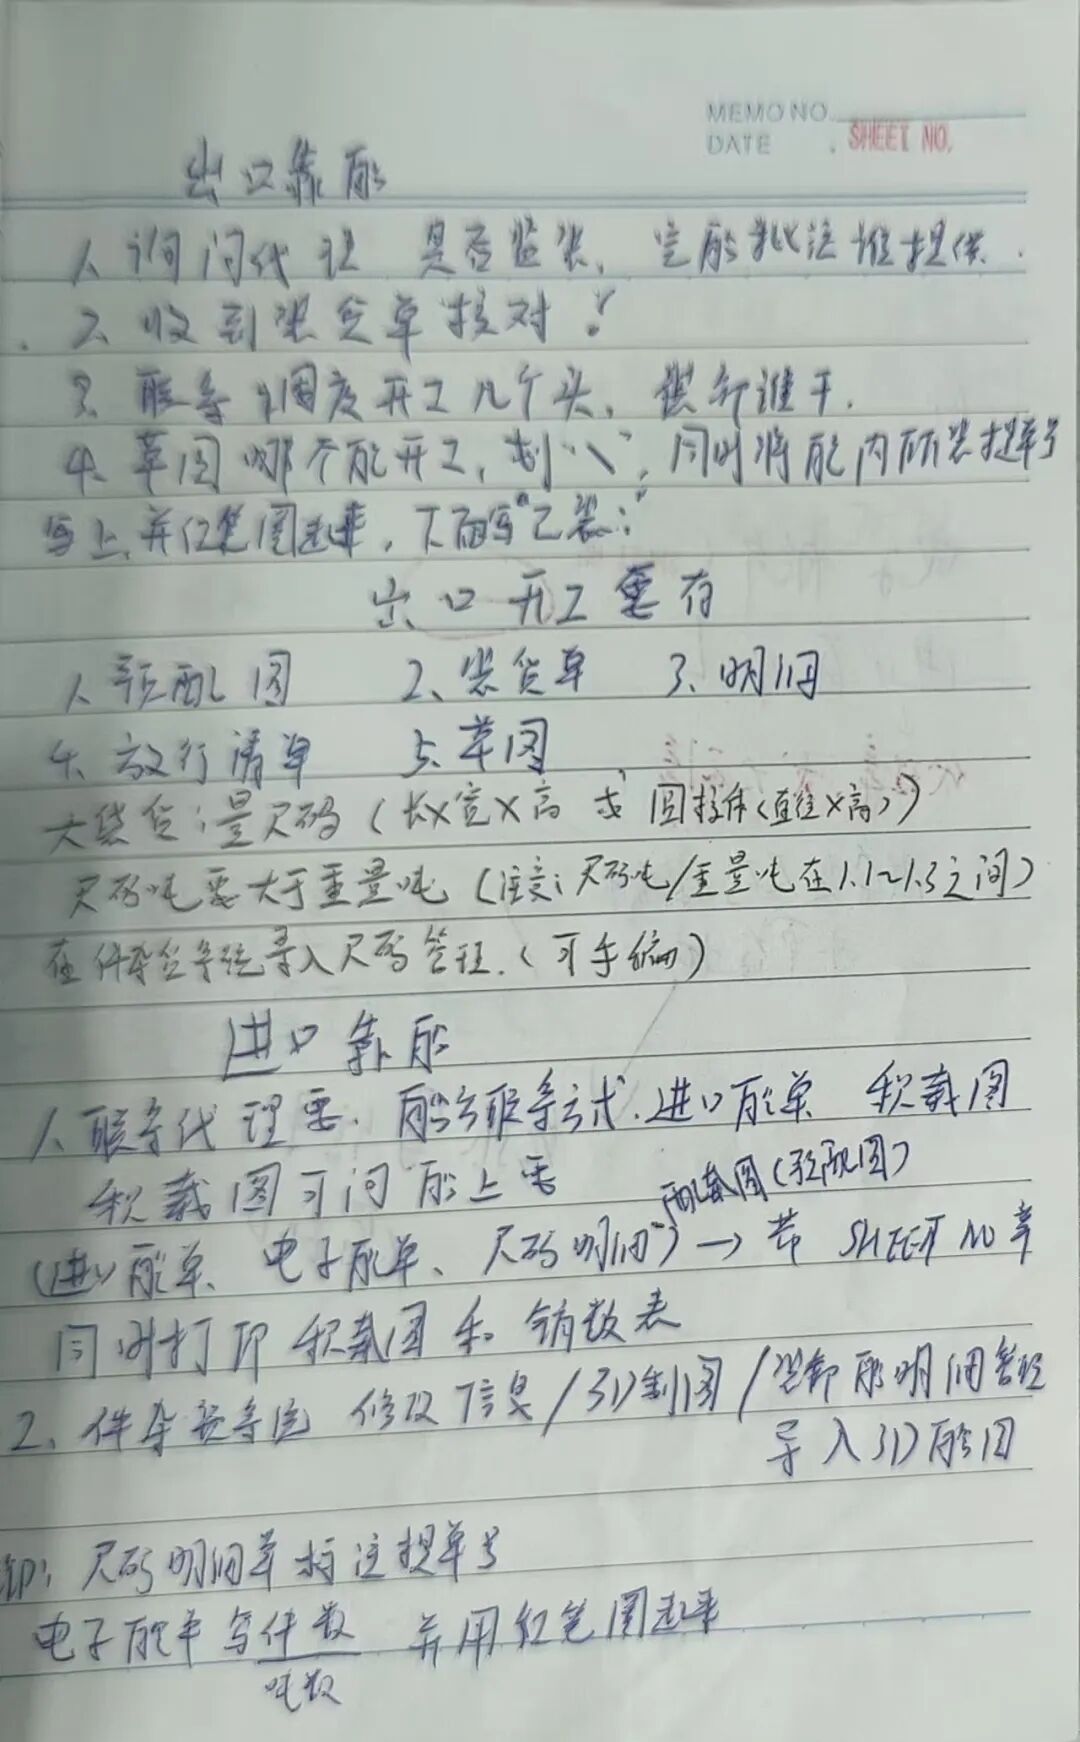 MEMO NO.
DATE
SHEET NO.
出口靠船
1、询问代理 是否监装，完船批注谁提供.
2、收到装货单核对！
3. 联系调度开工几个头，装卸谁干.
4. 草图哪个舱开工，划“\”，同时将舱内所装提单号
写上，并红笔圈起来，下面写“已装：”
出口开工要有
1、预配图 2、装货单 3、明细
4、放行清单 5、草图
大袋货：量尺码（长X宽X高 或 圆柱体（直径X高））
尺码吨要大于重量吨（注意：尺码吨/重量吨在1.1~1.3之间）
在件杂货系统导入尺码管理.（可手编）
进口靠船
1、联系代理要，船方联系方式.进口舱单 积载图
积载图可问船上要
配载图（预配图）
（进口舱单、电子舱单、尺码明细）→带 SHEET NO章
同时打印积载图和 销数表
2、件杂货系统 修改信息/3D制图/装卸船明细管理
导入3D船图
卸：尺码明细单标注提单号
电子舱单写件数 并用红笔圈起来
吨数